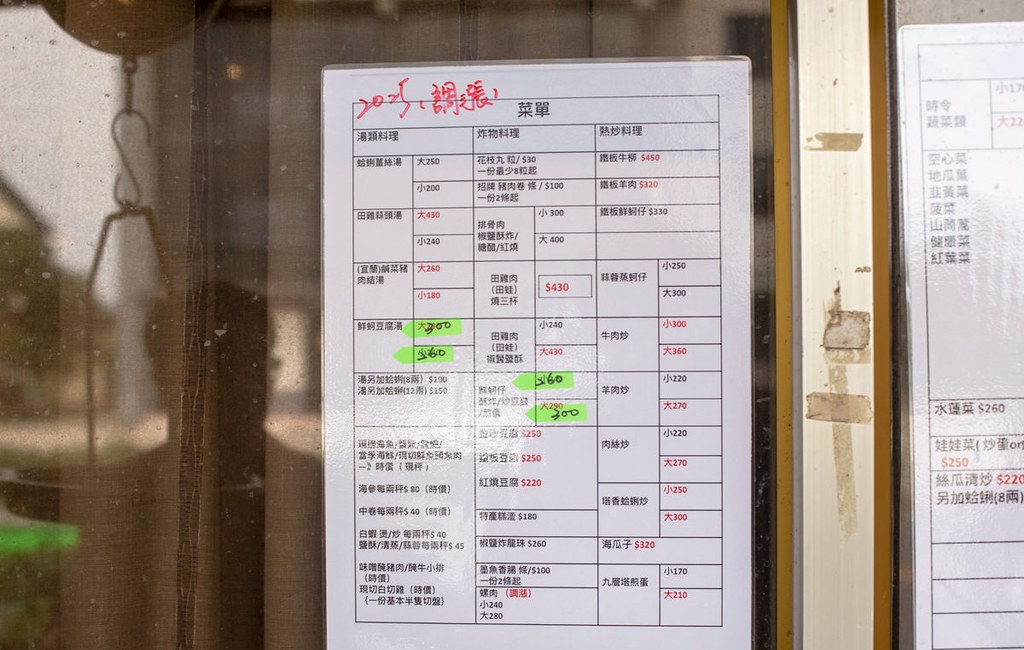 2025.調漲!
菜單
湯類料理
炸物料理
熱炒料理
蛤蜊薑絲湯
大250
小200
田雞蒜頭湯
大430
小240
(宜蘭)鹹菜豬
肉結湯
大260
小180
鮮蚵豆腐湯
300
湯另加蛤蜊(8兩) $100
湯另加蛤蜊(12兩) $150
當季海鮮/現切
時價 (現秤)
海參每兩秤$ 80 (時價)
中卷每兩秤$ 40 (時價)
白蝦 燙/炒 每兩秤$ 40
鹽酥/清蒸/蒜蓉每兩秤$ 45
味噌醃豬肉/醃牛小排
(時價)
現切白切雞 (時價)
(一份基本半隻切盤)
花枝丸 粒/ $30
一份最少8粒起
招牌 豬肉卷 條 / $100
一份2條起
排骨肉
椒鹽酥炸/
糖醋/紅燒
小 300
大 400
田雞肉
(田蛙)
燒三杯
$430
田雞肉
(田蛙)
椒鹽酥
小240
大430
鮮蚵仔
酥炸/炒豆豉
/煎蛋
大290
300
金沙豆腐 $250
鐵板豆腐 $250
紅燒豆腐 $220
特產糕渣 $180
椒鹽炸龍珠 $260
墨魚香腸 條/$100
一份2條起
螺肉 (調漲)
小240
大280
鐵板牛柳 $450
鐵板羊肉 $320
鐵板鮮蚵仔 $330
蒜蓉蒸蚵仔
小250
大300
牛肉炒
小300
大360
羊肉炒
小220
大270
肉絲炒
小220
大270
塔香蛤蜊炒
小250
大300
海瓜子 $320
九層塔煎蛋
小170
大210
時令
蔬菜類
小170
大22
空心菜
地瓜葉
韭黃菜
菠菜
山茼蒿
健康菜
紅葉菜
水蓮菜 $260
娃娃菜( 炒蛋or
$250
絲瓜清炒 $220
另加蛤蜊(8兩)